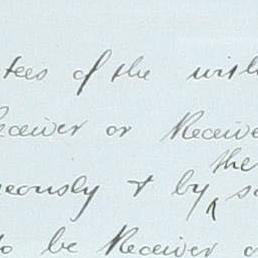 tees of the wish
Receiver or Receive
the
neously & by ^ so
to be Receiver o